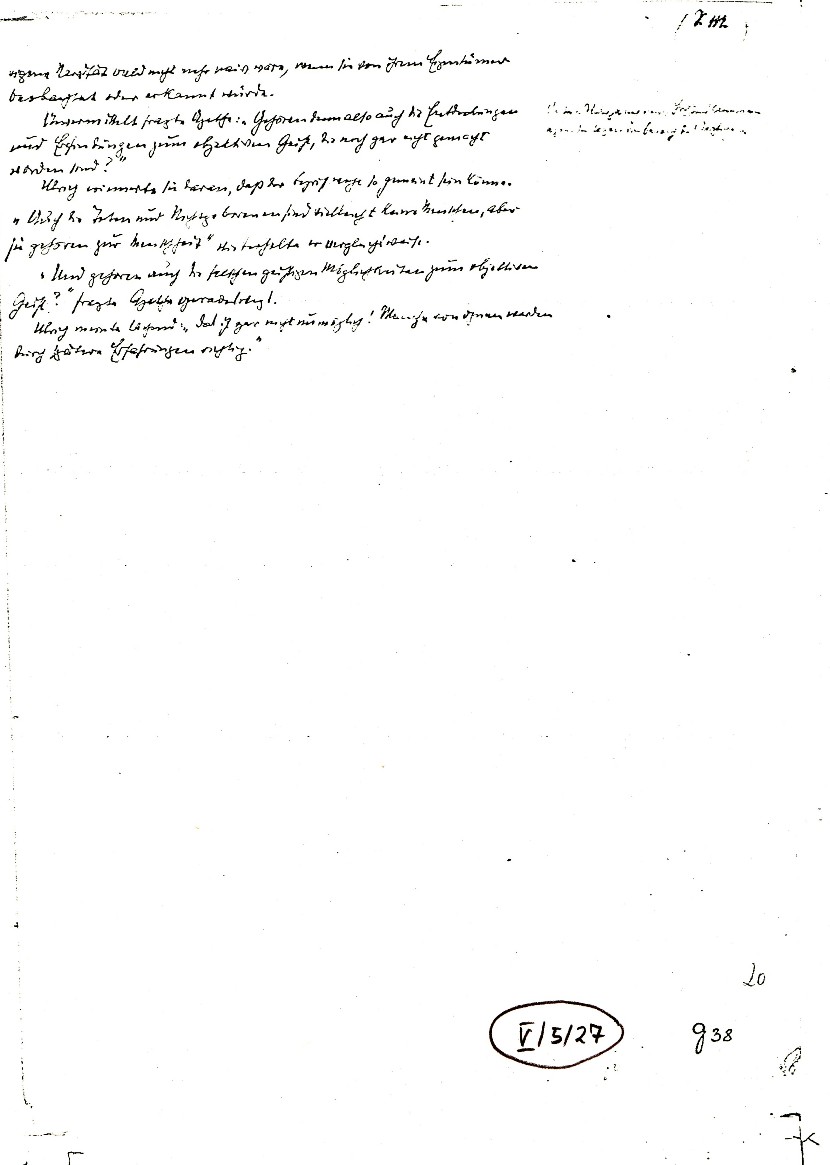 eigene Naivität bald nicht mehr naiv wäre, wenn sie von ihrem Eigentümer
beobachtet oder erkannt würde.
Unvermittelt fragte Agathe: „Gehören denn also auch die Entdeckungen
und Erfindungen zum objektiven Geist, die noch gar nicht gemacht
worden sind?"
Ulrich erinnerte sie daran, daß der Begriff so gemeint sein könne.
„Auch die Toten und Nichtgeborenen sind vielleicht keine Menschen, aber
sie gehören zur Menschheit" wiederholte er vergleichsweise.
„Und gehören auch die falschen geistigen Möglichkeiten zum objektiven
Geist?" fragte Agathe
Ulrich meinte lachend: „Das ist gar nicht unmöglich! Manche von ihnen werden
durch spätere Erfahrungen richtig."
20
V/5/27
g38